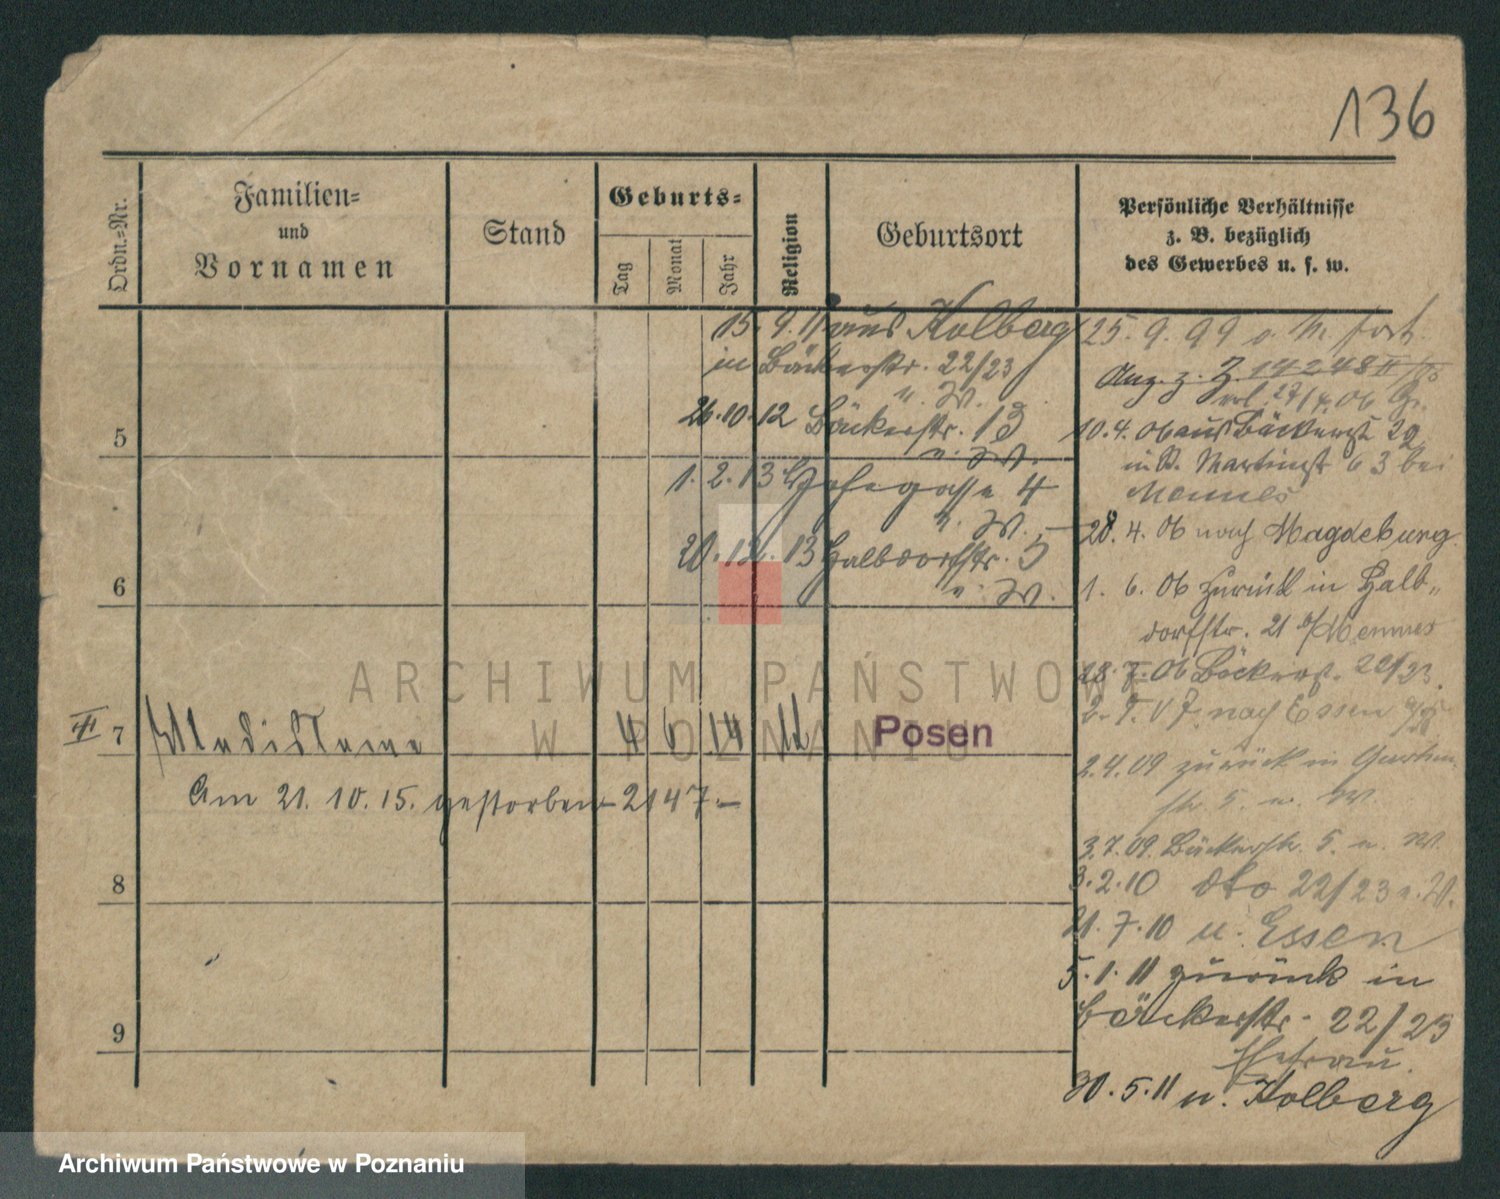 136
Ordn.-Nr.
Familien-
und
Vornamen
Stand
Geburts-
Tag
Monat
Jahr
Religion
Geburtsort
Persönliche Verhältnisse
z. B. bezüglich
des Gewerbes u. s. w.
15. 9. 11 aus Kolberg
in Bäckerstr. 22/23
u. W.
26.10.12 Bäckerstr. 13
u. W.
5
1. 2. 13 4
u. W.
20. 12. 13 Halbdorfstr. 5
u. W.
6
III 7 Wladislawa 4 6 14 Posen
Am 21. 10. 15. gestorben - 2147 -
8
9
25. 9. 99 fort
Ang. z. Z. 19248 II
10. 4. 06 aus Bäckerstr 22
in St. Martinstr 63 bei
28. 4. 06 nach Magdeburg.
1. 6. 06 zurück in Halb-
dorfstr. 21
28. 7. 06 Bäckerst. 22/23.
nach Essen
2. 4. 09 zurück in Garten-
str. 5. u. W.
3. 7. 09. Bäckerstr. 5. u. W.
3. 2. 10 dto 22/23 u. W.
21. 7. 10 n. Essen
5. 1. 11 zurück in
Bäckerstr. 22/23
Ehefrau.
30. 5. 11 n. Kolberg
ARCHIWUM PAŃSTWOWE
W POZNANIU
Archiwum Państwowe w Poznaniu